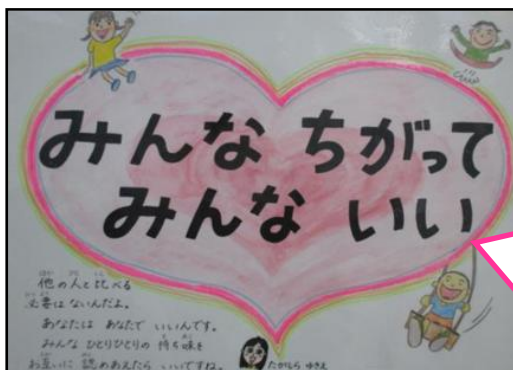 みんな ちがって
みんな いい
他の人と比べる
必要はないんだよ。
あなたは あなたで いいんです。
みんな ひとりひとりの 持ち味を
お互いに 認めあえたら いいですね。